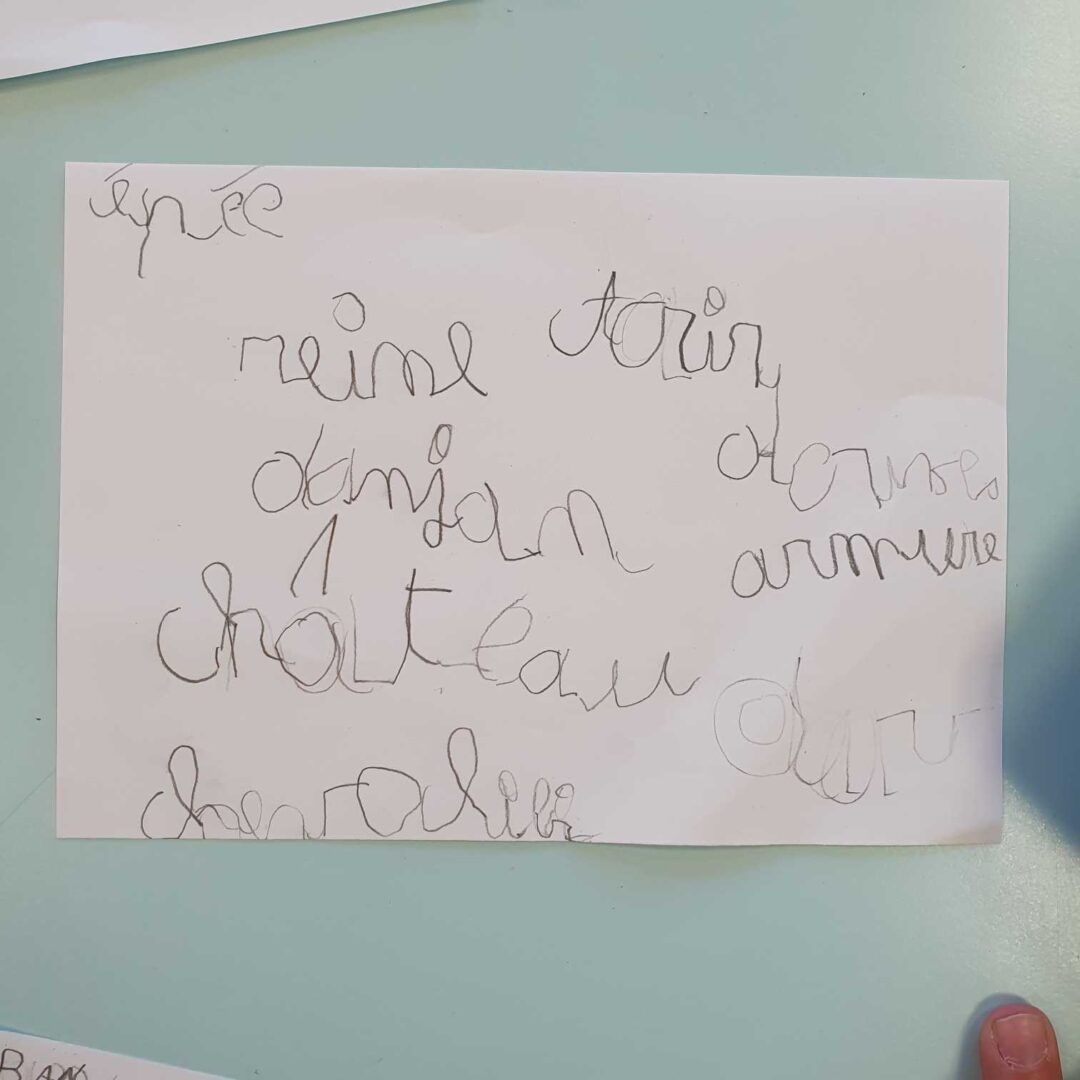 épée
reine
donjon
douves
armure
château
chevalier